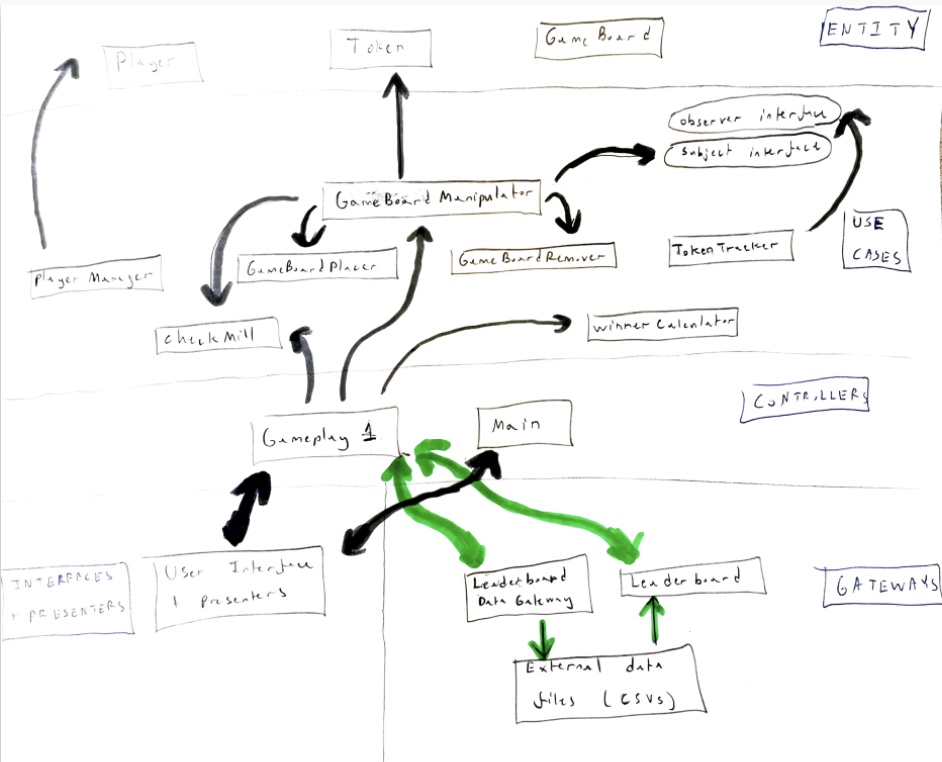 ENTITY
Player
Token
GameBoard
observer interface
subject interface
GameBoardManipulator
USE
CASES
Player Manager
GameBoardPlacer
GameBoardRemover
TokenTracker
CheckMill
winnerCalculator
CONTROLLERS
Gameplay 1
Main
INTERFACES
+ PRESENTERS
User Interface
+ Presenters
Leaderboard
Data Gateway
Leaderboard
GATEWAYS
External data
files (CSVs)